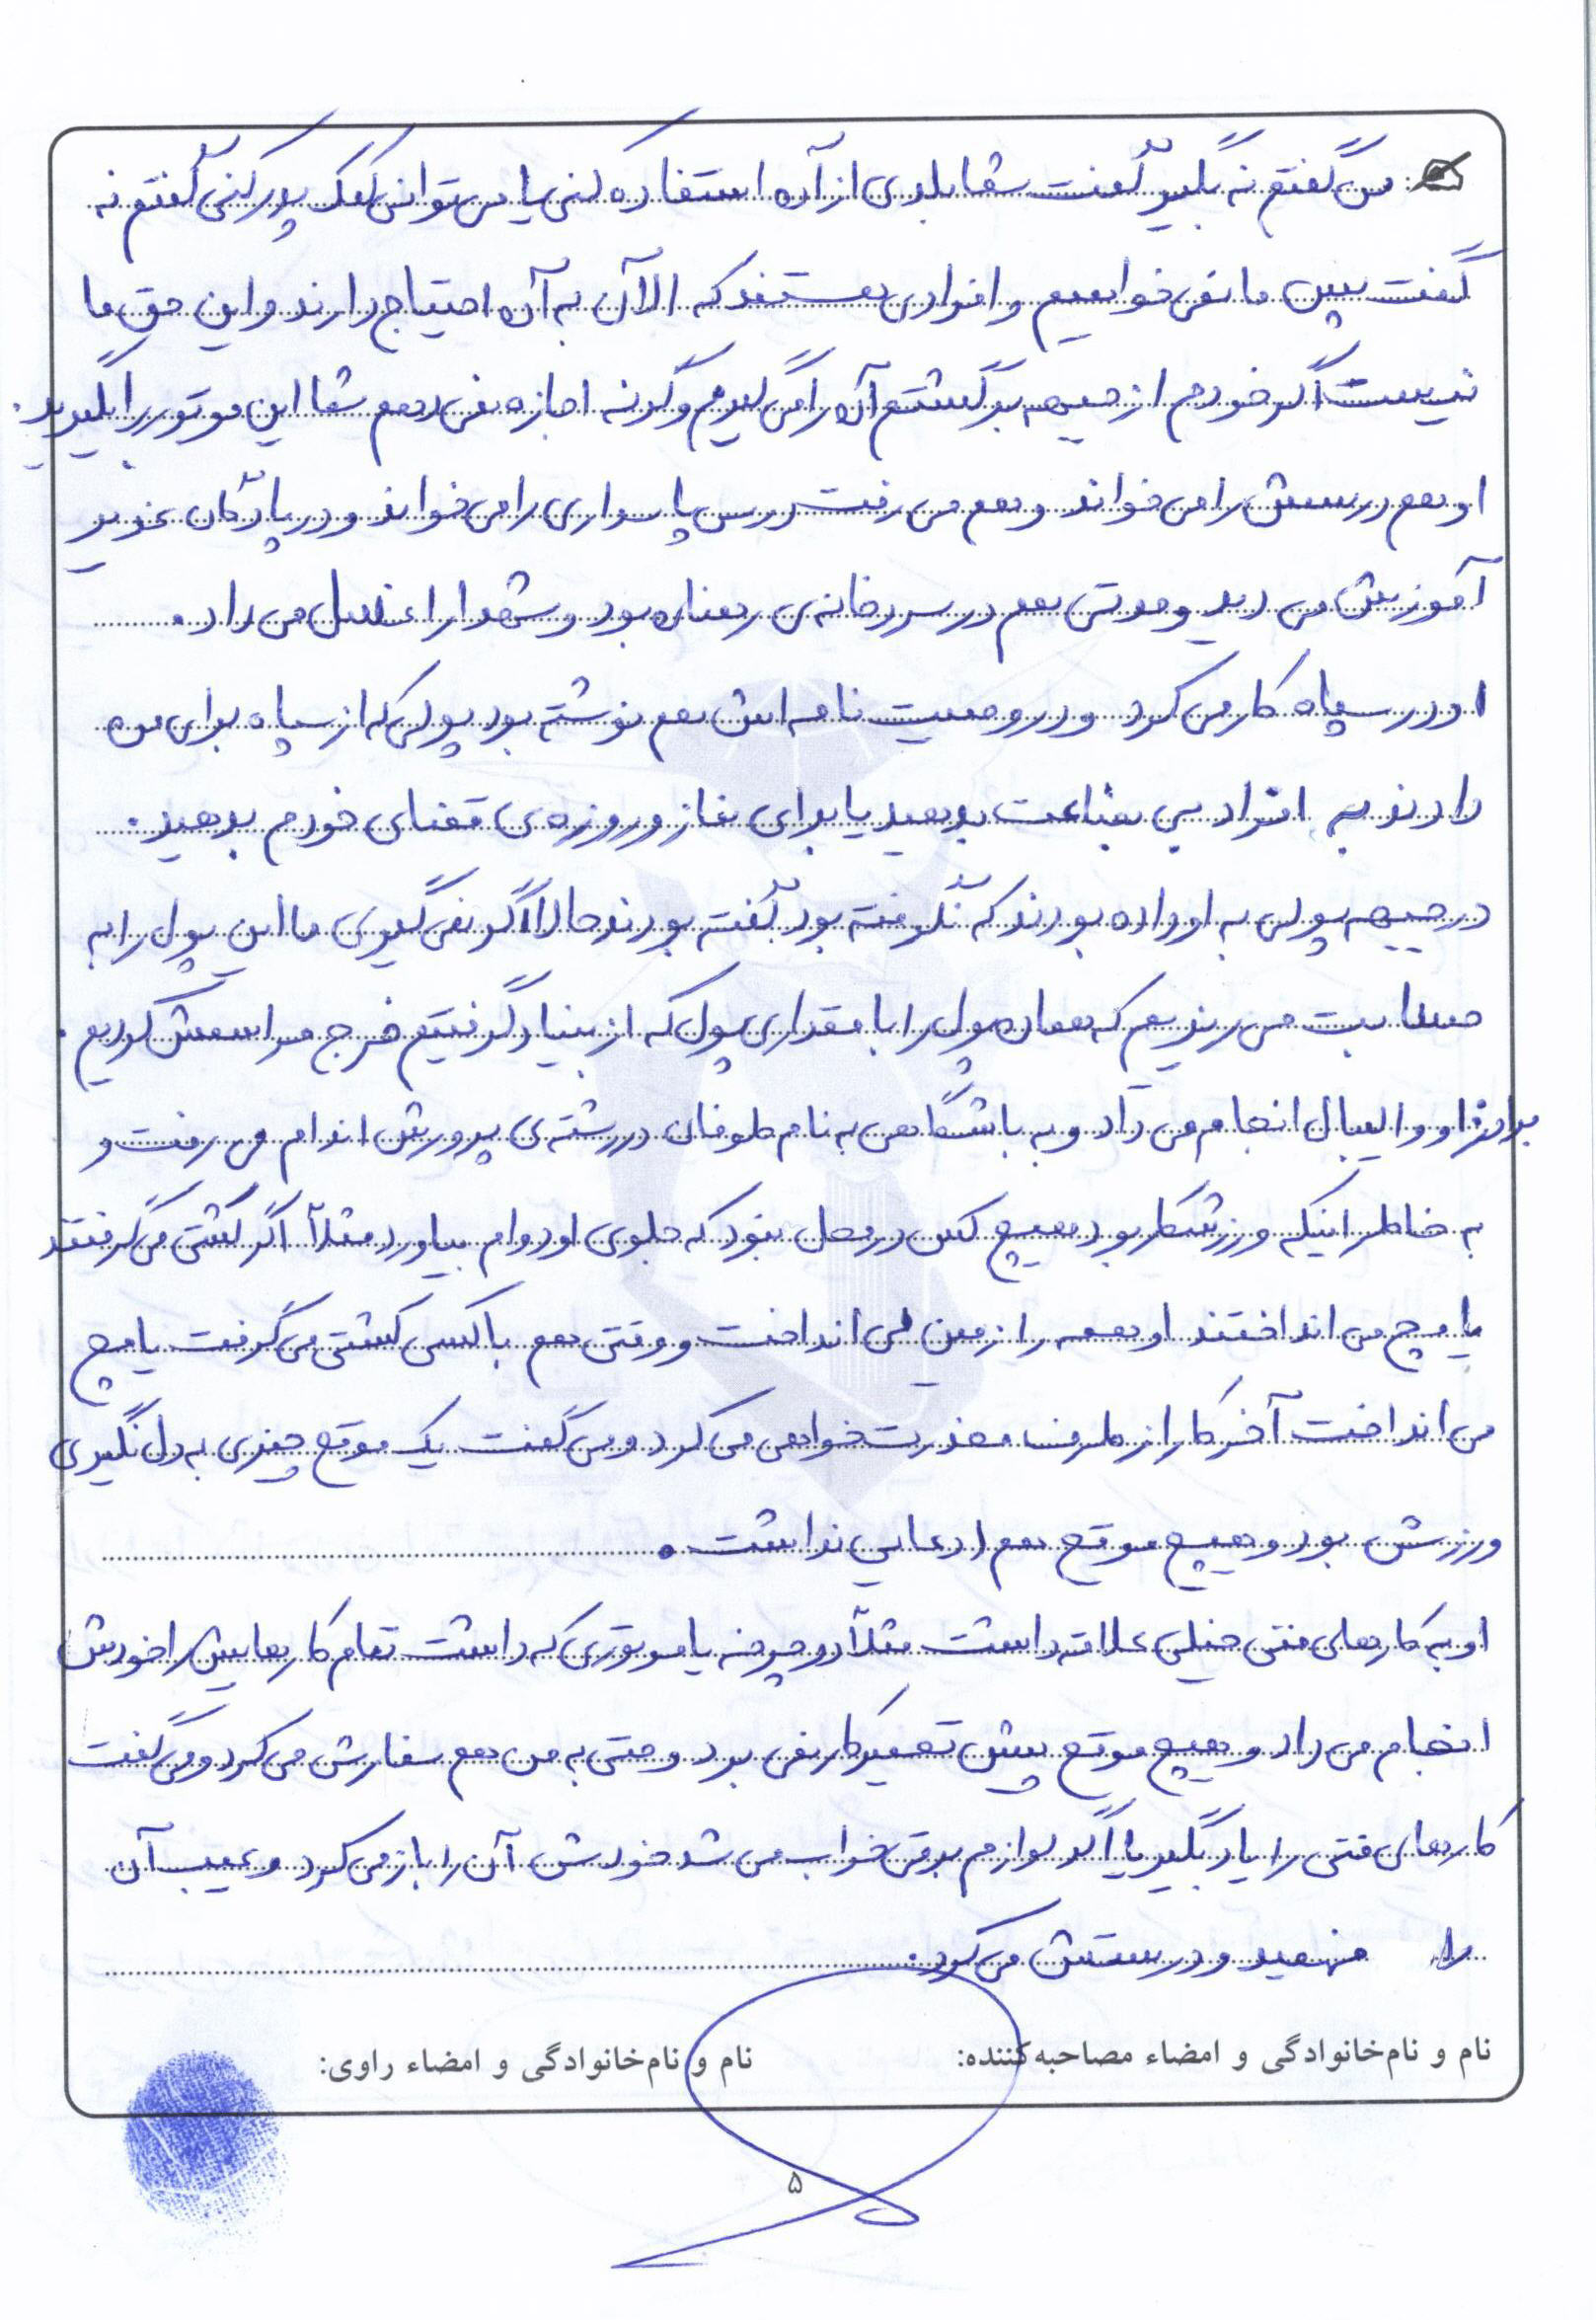 من گفتم نه بگیر گفت شما بلدی از آن استفاده کنی یا می توانی کمک پدر کنی گفتم نه
گفت پس ما نمی خواهیم و افرادی هستند که الان به آن احتیاج دارند و این حق ما
نیست اگر خودم از جبهه برگشتم آن را می گیرم وگرنه اجازه نمی دهم شما این موتور را بگیرید.
او هم درسش را می خواند و هم می رفت درس پاسداری را می خواند و در پادگان غدیر
آموزش می دید و مدتی هم در سردخانه ی بود و شهدا را غسل می داد.
او در سپاه کار می کرد و در وصیت نامه اش هم نوشته بود پولی که از سپاه برای من
دادند به افراد بی بضاعت بدهید یا برای نماز و روزه ی قضای خودم بدهید.
در جبهه پولی به او داده بودند که نگرفته بود گفته بودند حالا اگر نمی گیری ما این پول را به
حسابت می ریزیم که همان پول را با مقداری پول که از بنیاد گرفتیم خرج مراسمش کردیم.
برادرم او والیبال انجام می داد و به باشگاهی به نام طوفان در رشته ی پرورش اندام می رفت و
به خاطر اینکه ورزشکار بود هیچ کس در محل نبود که جلوی او دوام بیاورد مثلاً اگر کشتی می گرفتند
یا مچ می انداختند او همه را زمین می انداخت و وقتی هم با کسی کشتی می گرفت یا مچ
می انداخت آخر کار از طرف معذرت خواهی می کرد و می گفت یک موقع چیزی به دل نگیری
ورزش بود و هیچ موقع هم ادعایی نداشت.
او به کارهای فنی خیلی علاقه داشت مثلاً دوچرخه یا موتوری که داشت تمام کارهایش را خودش
انجام می داد و هیچ موقع پیش تعمیرکار نمی برد و حتی به من هم سفارش می کرد و می گفت
کارهای فنی را یاد بگیر یا اگر لوازم برقی خراب می شد خودش آن را باز می کرد و عیب آن
را فهمید و درستش می کرد.
نام و نام‌خانوادگی و امضاء مصاحبه‌کننده: نام و نام‌خانوادگی و امضاء راوی:
۵